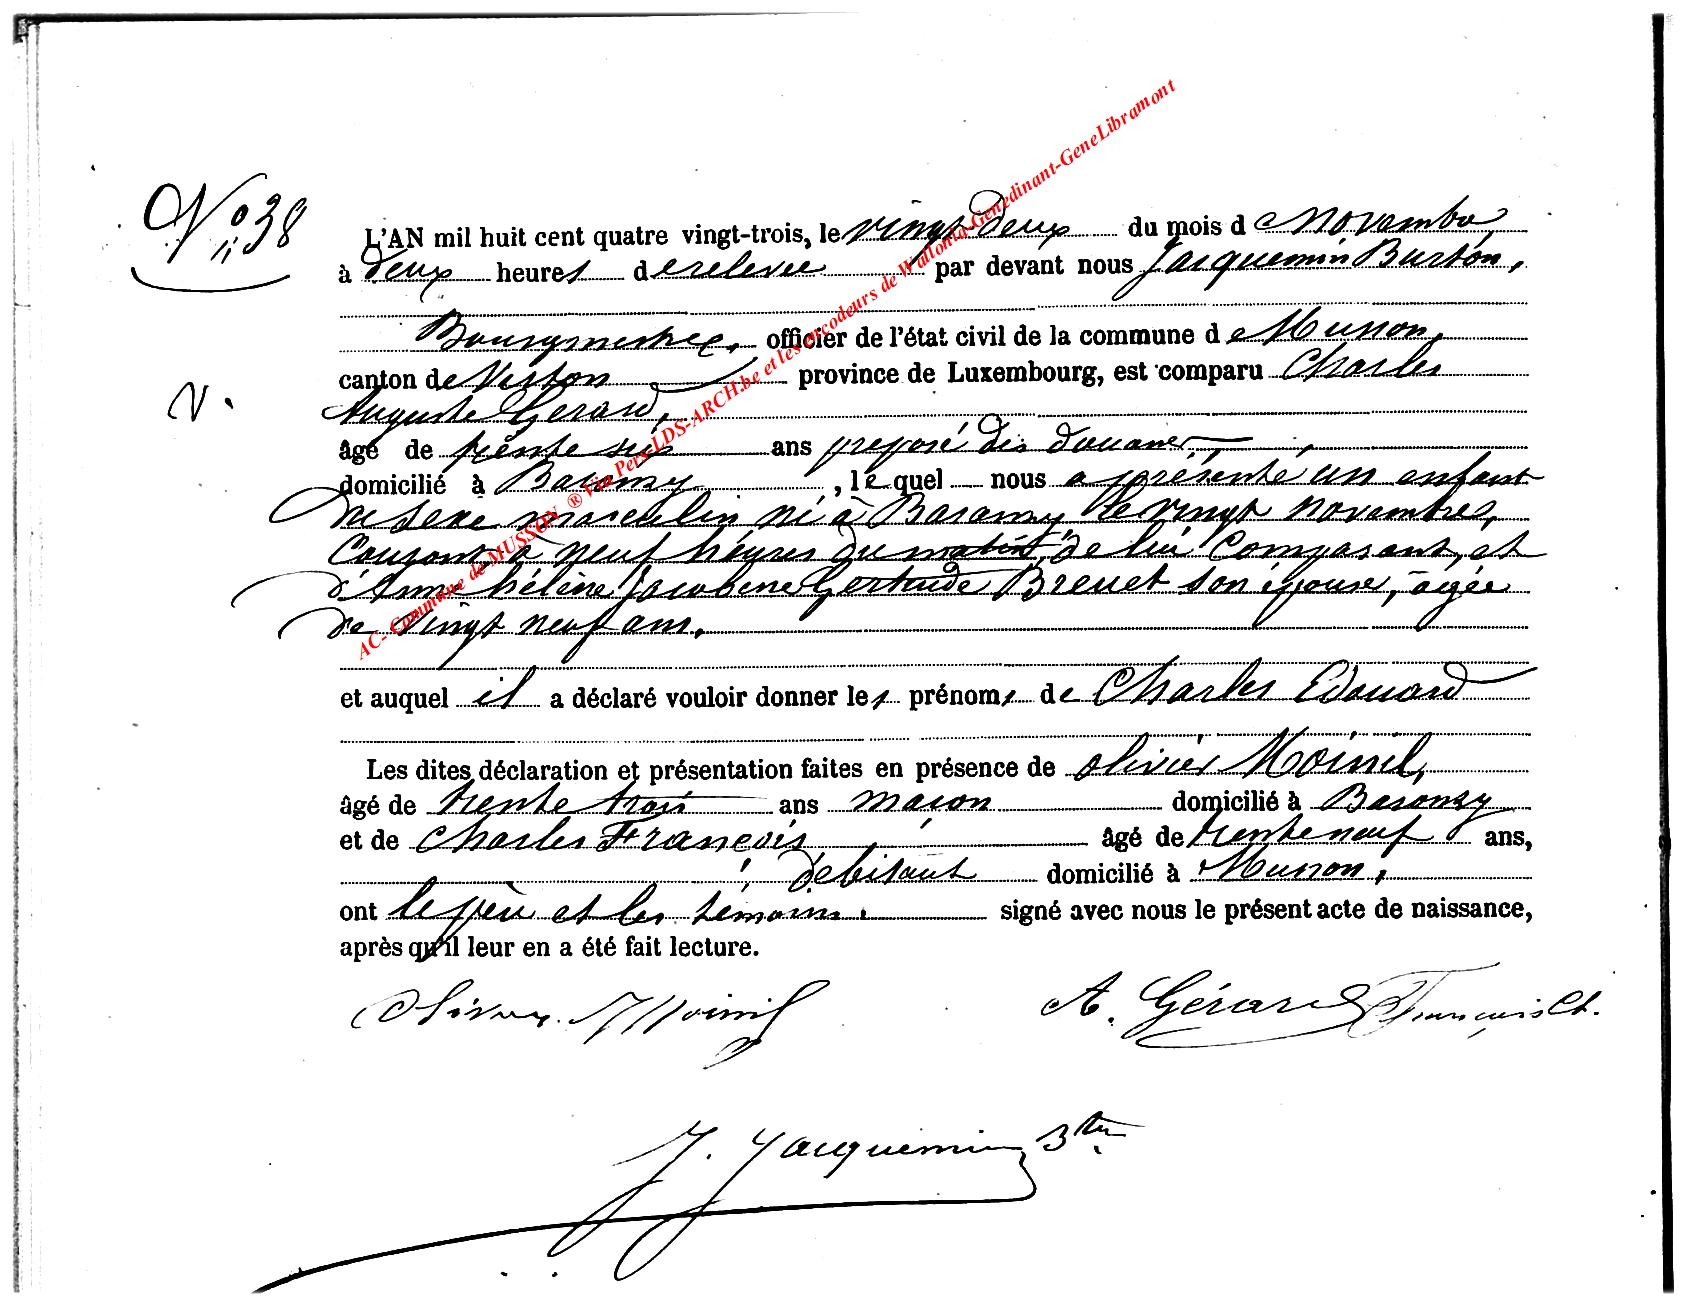 N° 38
L'AN mil huit cent quatre vingt-trois, le vingt deux du mois de Novembre,
à deux heures de relevée par devant nous Jacquemin Burton,
Bourgmestre, officier de l'état civil de la commune de Musson,
canton de Virton province de Luxembourg, est comparu Charles
V.
Auguste Gerard,
âgé de trente six ans preposé des douanes,
domicilié à Baranzy, lequel nous a présenté un enfant
du sexe masculin né à Baranzy le vingt novembre,
Courant à neuf heures du matin, de lui Comparant, et
d'Anne hélène Jacobine Gertrude Breuet son épouse, agée
de vingt neuf ans.
et auquel il a déclaré vouloir donner les prénoms de Charles Edouard
Les dites déclaration et présentation faites en présence de olivier Moinil,
âgé de trente trois ans maçon domicilié à Baranzy
et de Charles François, âgé de trente neuf ans,
debitant domicilié à Musson,
ont le père et les témoins signé avec nous le présent acte de naissance,
après qu'il leur en a été fait lecture.
Olivier Moinil A. Gérard François Ch.
J. Jacquemin Btn
AC- Commune de MUSSON ® Via Pers-LDS-ARCH.be et les encodeurs de Wallonia-Genedinant-GeneLibramont